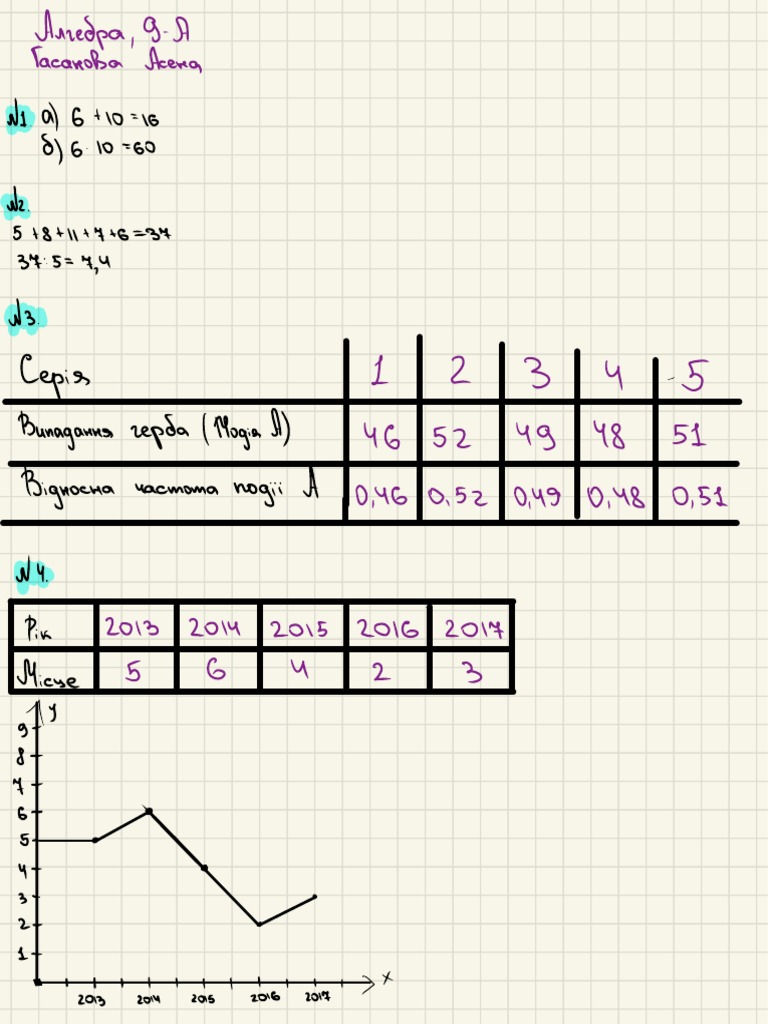 Алгебра, 9-А
Гасанова Асена
№1. а) 6 + 10 = 16
б) 6 · 10 = 60
№2.
5 + 8 + 11 + 7 + 6 = 37
37 : 5 = 7,4
№3.
Серія 1 2 3 4 5
Випадання герба (Подія А) 46 52 49 48 51
Відносна частота події А 0,46 0,52 0,49 0,48 0,51
№4.
Рік 2013 2014 2015 2016 2017
Місце 5 6 4 2 3
y
9
8
7
6
5
4
3
2
1
x
2013 2014 2015 2016 2017